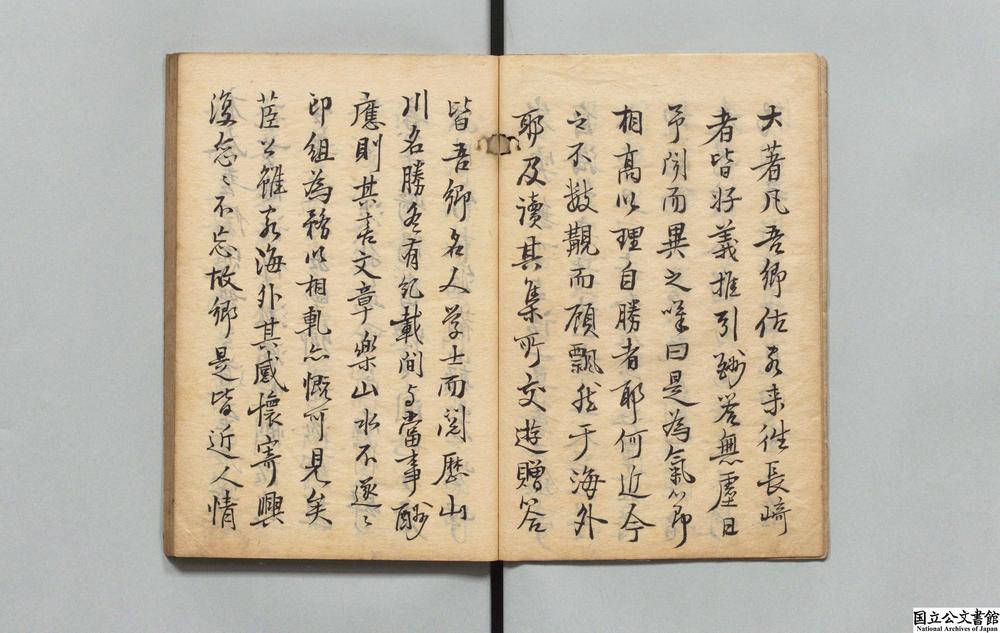 大著凡吾鄉估客来往長崎
者皆好義推引酬答無虛日
予閱而異之嘆曰是為氣節
相高以理自勝者耶何近今
之不數覯而顧飄然于海外
耶及讀其集所交遊贈答
皆吾鄉名人学士而閱歷山
川名勝各有紀載间与當事酬
應則其言文章樂山水不遂〻
印組為務以相軋亦慨可見矣
茝公雖客海外其感懷寄興
復念〻不忘故鄉是皆近人情
国立公文書館
National Archives of Japan